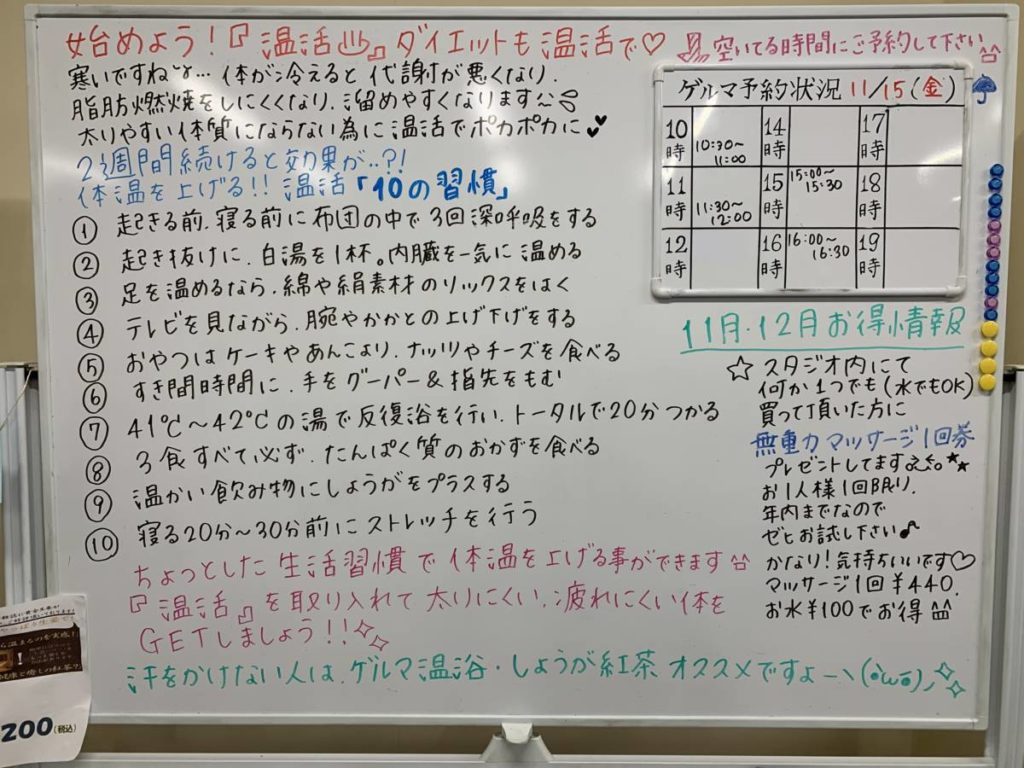 始めよう!『温活♨』ダイエットも温活で♡
寒いですね…体が冷えると代謝が悪くなり、
脂肪燃焼をしにくくなり、溜めやすくなります〜
太りやすい体質にならない為に温活でポカポカに
2週間続けると効果が..?!
体温を上げる!!温活「10の習慣」
① 起きる前、寝る前に布団の中で3回深呼吸をする
② 起き抜けに、白湯を1杯。内臓を一気に温める
③ 足を温めるなら、綿や絹素材のソックスをはく
④ テレビを見ながら、腕やかかとの上げ下げをする
⑤ おやつはケーキやあんこより、ナッツやチーズを食べる
⑥ すき間時間に、手をグーパー&指先をもむ
⑦ 41℃〜42℃の湯で反復浴を行い、トータルで20分つかる
⑧ 3食すべて必ず、たんぱく質のおかずを食べる
⑨ 温かい飲み物にしょうがをプラスする
⑩ 寝る20分〜30分前にストレッチを行う
ちょっとした生活習慣で体温を上げる事ができます^^
『温活』を取り入れて太りにくい、疲れにくい体を
GETしましょう!!
汗をかけない人は、ゲルマ温浴・しょうが紅茶 オススメですよーヽ(•̀ω•́)ノ
空いてる時間にご予約して下さい^^
ゲルマ予約状況 11/15(金)
10時 10:30〜11:00 14時 17時
11時 11:30〜12:00 15時 15:00〜15:30 18時
12時 16時 16:00〜16:30 19時
11月・12月お得情報
☆ スタジオ内にて
何か1つでも(水でもOK)
買って頂いた方に
無重力マッサージ1回券
プレゼントしてます
お1人様1回限り、
年内までなので
ゼヒお試し下さい♪
かなり!気持ちいいです♡
マッサージ1回¥440、
お水¥100でお得^^
200(税込)